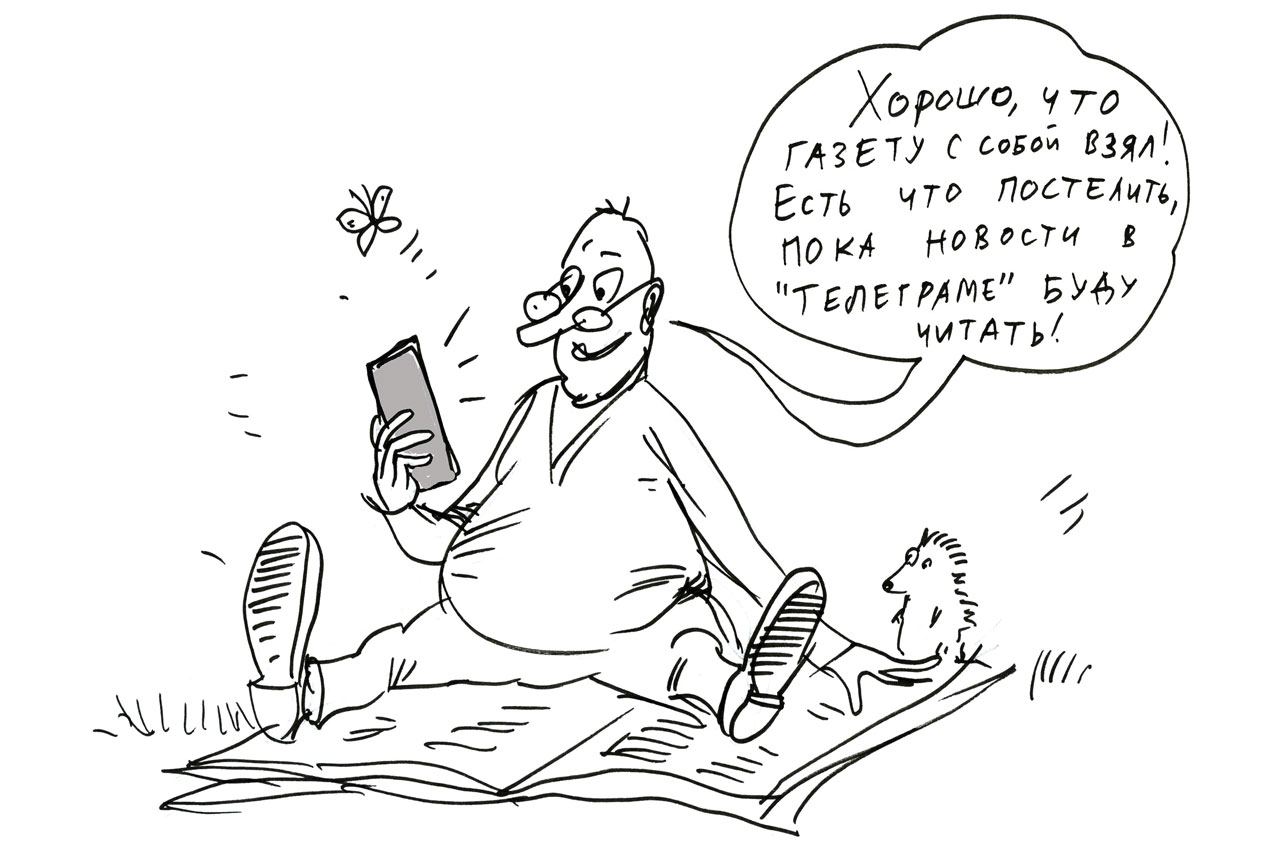 Хорошо, что
газету с собой взял!
Есть что постелить,
пока новости в
"Телеграме" буду
читать!